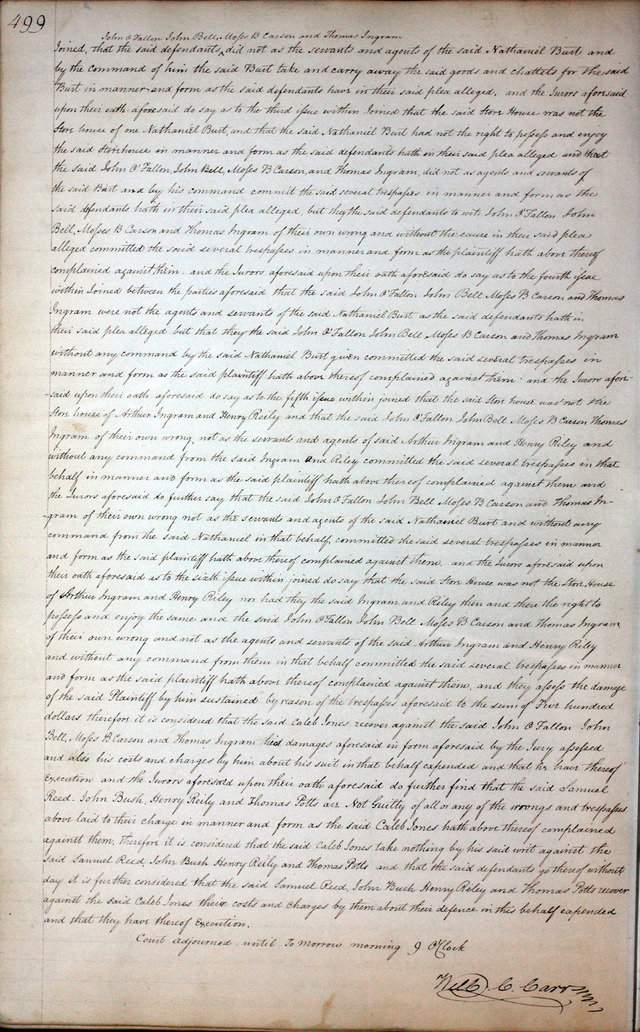 499
John O'Fallon John Bell, Moses B Carson and Thomas Ingram
Joined, that the said defendants ^ did not as the servants and agents of the said Nathaniel Burt and
by the command of him the said Burt take and carry away the said goods and chattels for the said
Burt in manner and form as the said defendants have in their said plea alleged, and the Jurors aforesaid
upon their oath aforesaid do say as to the third issue within Joined that the said Store House was not the
Store house of one Nathaniel Burt, and that the said Nathaniel Burt had not the right to possess and enjoy
the said Storehouse in manner and form as the said defendants hath in their said plea alleged and that
the said John O'Fallon, John Bell, Moses B Carson, and Thomas Ingram, did not as agents and servants of
the said Burt and by his command commit the said several trespasses in manner and form as the
said defendants hath in their said plea alleged, but they the said defendants to wit John O'Fallon John
Bell, Moses B Carson and Thomas Ingram of their own wrong and without the cause in their said plea
alleged committed the said several trespasses in manner and form as the plaintiff hath above thereof
complained against them. and the Jurors aforesaid upon their oath aforesaid do say as to the fourth issue
within Joined between the parties aforesaid that the said John O'Fallon John Bell Moses B Carson and Thomas
Ingram were not the agents and servants of the said Nathaniel Burt as the said defendants hath in
their said plea alleged but that they the said John O'Fallon John Bell Moses B Carson and Thomas Ingram
without any command by the said Nathaniel Burt given committed the said several trespasses in
manner and form as the said plaintiff hath above thereof complained against them. and the Jurors afore-
said upon their oath aforesaid do say as to the fifth issue within joined that the said Store house was not the
Store house of Arthur Ingram and Henry Reily and that the said John O'Fallon John Bell Moses B Carson Thomas
Ingram of their own wrong not as the servants and agents of said Arthur Ingram and Henry Riley and
without any command from the said Ingram and Riley committed the said several trespasses in that
behalf in manner and form as the said plaintiff hath above thereof complained against them and
the Jurors aforesaid do further say that the said John O'Fallon John Bell Moses B Carson and Thomas In-
-gram of their own wrong not as the servants and agents of the said Nathaniel Burt and without any
command from the said Nathaniel in that behalf, committed the said several trespasses in manner
and form as the said plaintiff hath above thereof complained against them, and the Jurors aforesaid upon
their oath aforesaid as to the sixth issue within joined do say that the said Store House was not the Store House
of Arthur Ingram and Henry Riley nor had they the said Ingram and Riley then and there the right to
possess and enjoy the same and the said John O'Fallon John Bell Moses B Carson and Thomas Ingram
of their own wrong and not as the agents and servants of the said Arthur Ingram and Henry Riley
and without any command from them in that behalf committed the said several trespasses in manner
and form as the said plaintiff hath above thereof complained against them, and they assess the damage
of the said Plaintiff by him sustained by reason of the trespasses aforesaid to the sum of Five hundred
dollars therefore it is considered that the said Caleb Jones recover against the said John O'Fallon John
Bell, Moses B Carson and Thomas Ingram his damages aforesaid in form aforesaid by the Jury assessed
and also his costs and charges by him about his suit in that behalf expended and that he have thereof
Execution and the Jurors aforesaid upon their oath aforesaid do further find that the said Samuel
Reed. John Bush, Henry Reily and Thomas Potts are Not Guilty of all or any of the wrongs and trespasses
above laid to their charge in manner and form as the said Caleb Jones hath above thereof complained
against them, therefore it is considered that the said Caleb Jones take nothing by his said writ against the
said Samuel Reed, John Bush Henry Reily and Thomas Potts and that the said defendants go thereof without
day it is further considered that the said Samuel Reed, John Bush Henry Reily and Thomas Potts recover
against the said Caleb Jones their costs and charges by them about their defence in this behalf expended
and that they have thereof Execution.
Court adjourned until To Morrow morning 9 O'Clock
C. Carr